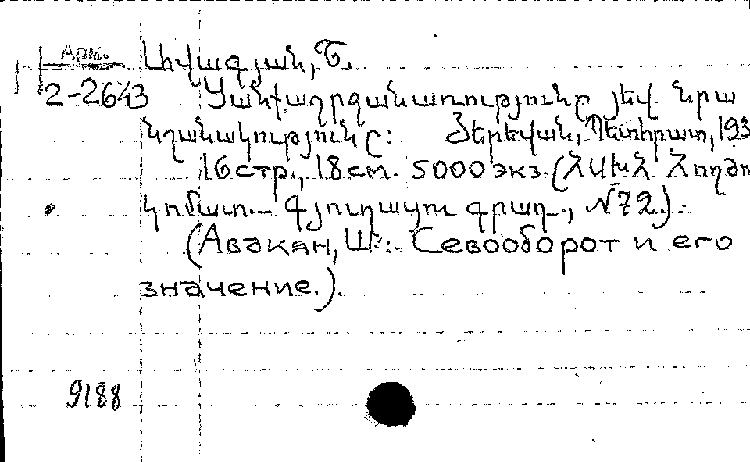 Арм.
2-2643
Ցանքաշրջանառությունը յեվ նրա
նշանակությունը: Յերեվան, Պետհրատ, 193
16 стр., 18 см. 5000 экз. (ՀԽԽՀ Հողժո
կոմատ.— Գյուղակու գրադ., №72.).
(Авакян, Ш.: Севооборот и его
значение.).
9188